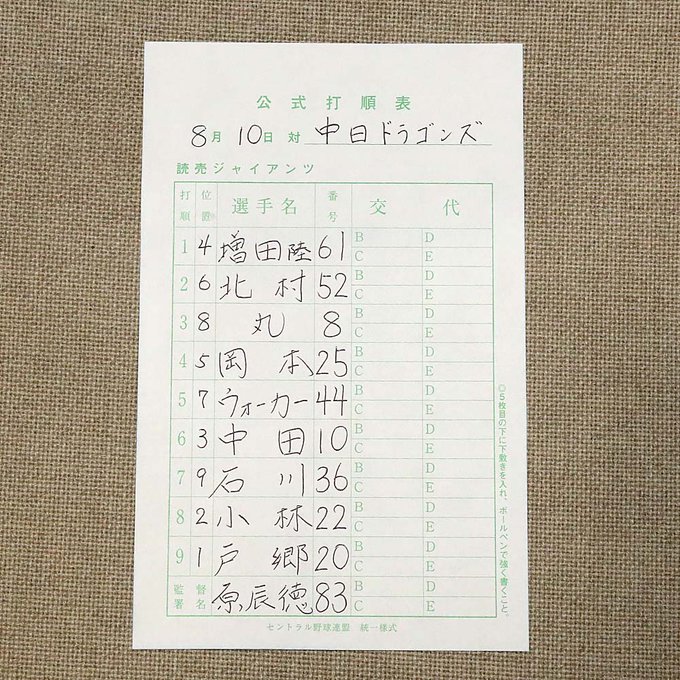 公式打順表
8月10日 対 中日ドラゴンズ
読売ジャイアンツ
打順 位置 選手名 番号 交代
1 4 増田陸 61 B D C E
2 6 北村 52 B D C E
3 8 丸 8 B D C E
4 5 岡本 25 B D C E
5 7 ウォーカー 44 B D C E
6 3 中田 10 B D C E
7 9 石川 36 B D C E
8 2 小林 22 B D C E
9 1 戸郷 20 B D C E
監督署名 原辰徳 83 B D C E
◎5枚目の下に下敷きを入れ、ボールペンで強く書くこと。
セントラル野球連盟 統一様式